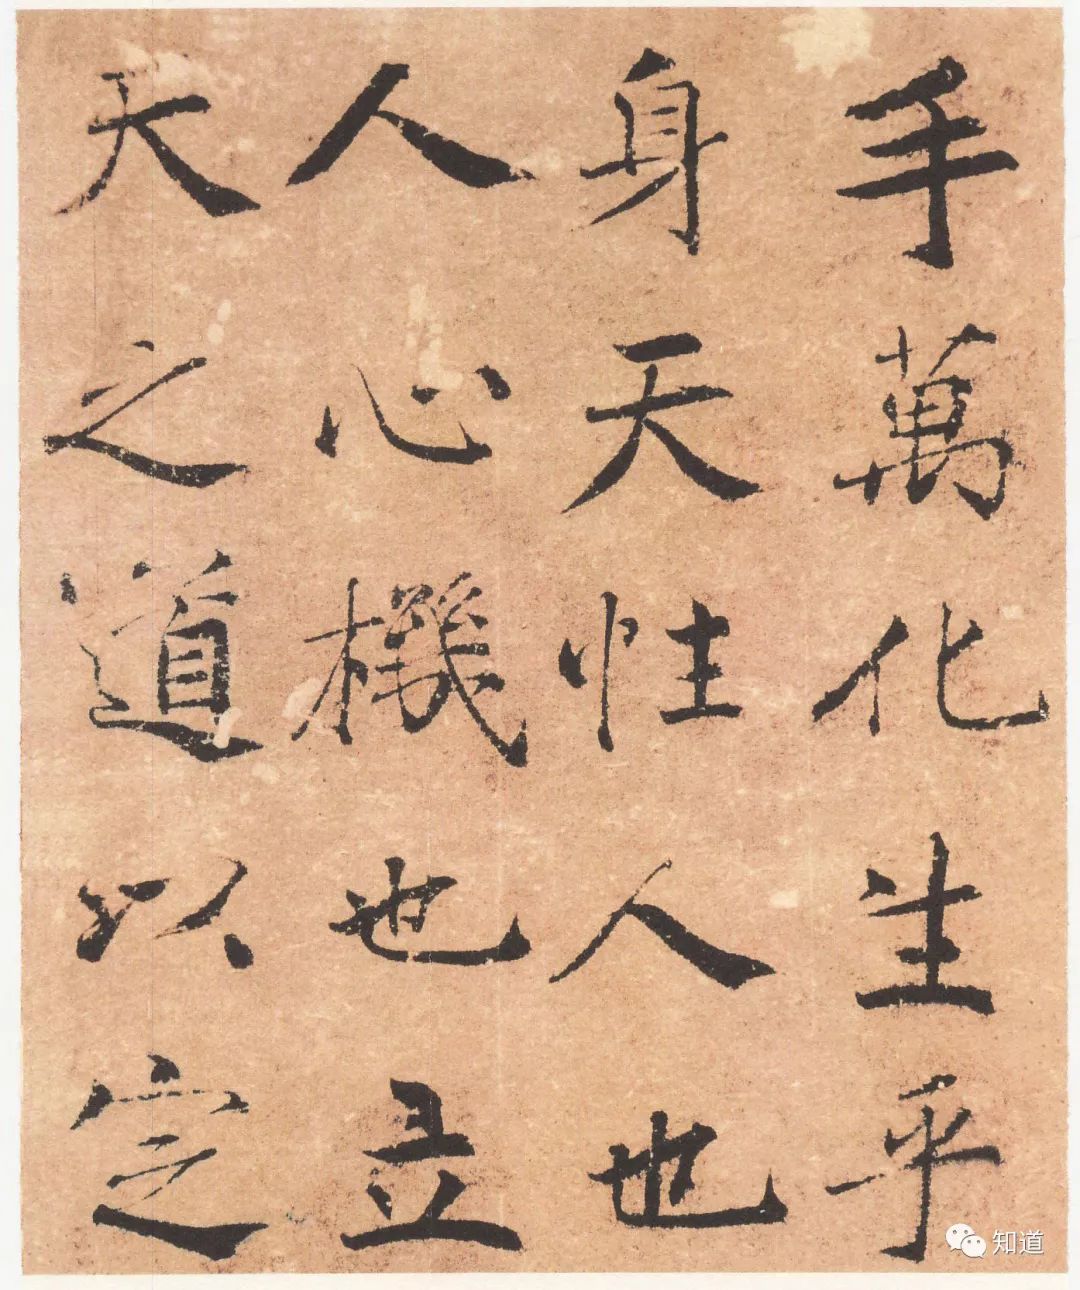 手萬化生乎
身天性人也
人心機也立
天之道以定
知道